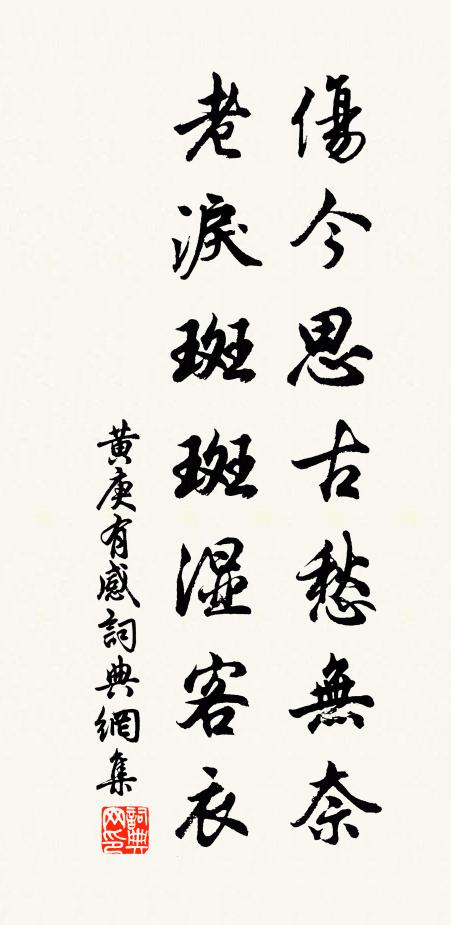 傷今思古愁無奈
老淚斑斑湿客衣
黄庚有感詞典網集
詞典
网印